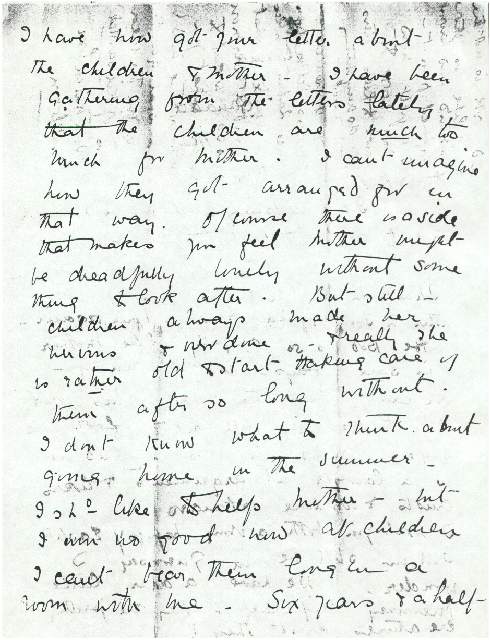 I have now got your letter about
the children & Mother – I have been
gathering from the letters lately
that the children are much too
much for Mother. I cant imagine
how they got arranged for in
that way. Of course there is a side
that makes you feel Mother might
be dreadfully lonely without some
thing to look after. But still –
children always made her
nervous & overdone & really she
is rather old to start taking care of
them after so long without.
I dont know what to think about
going home in the summer –
I shd like to help Mother – but
I am no good now at children
I cant bear them long in a
room with me – Six years & a half